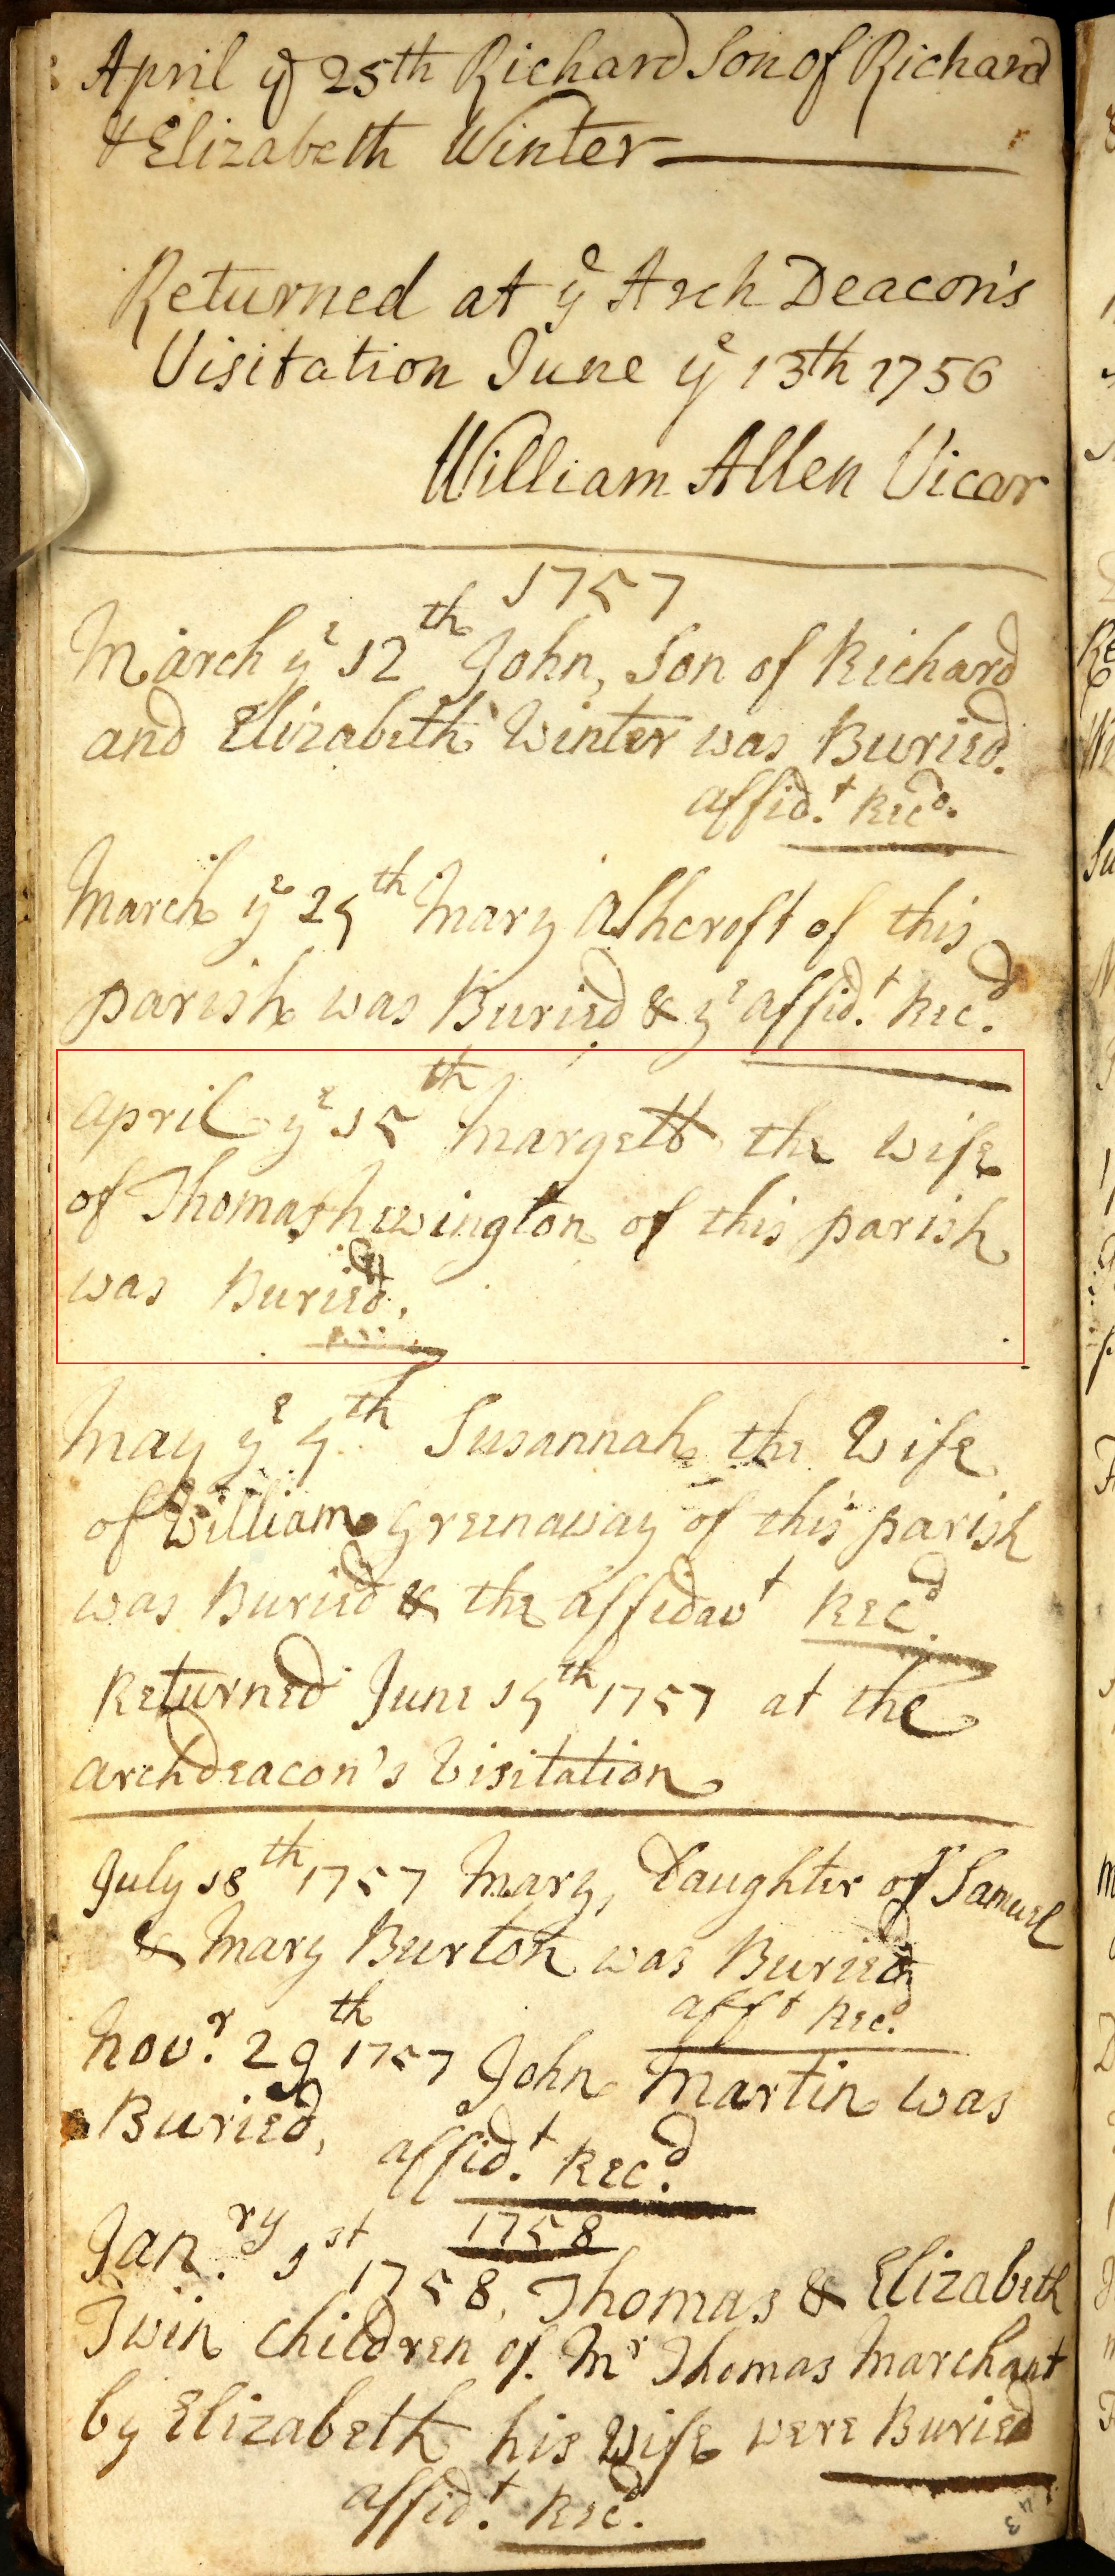 April ye 25th Richard Son of Richard
& Elizabeth Winter
Returned at ye Arch Deacon's
Visitation June ye 13th 1756
William Allen Vicar
1757
March ye 12th John, Son of Richard
and Elizabeth Winter was Buried.
affid.t Recd.
March ye 25th Mary Ashcroft of this
parish was Buried & ye affid.t Rec.d
April ye 15th Margett the wife
of Thomas of this parish
was Buried.
May ye 5th Susannah the Wife
of William Greenaway of this parish
was Buried & the affidavt Recd.
Returned June 15th 1757 at the
archdeacon's Visitation
July 18th 1757 Mary, Daughter of Samuel
& Mary Burton was Buried
afft Recd.
Nov.r 29th 1757 John Martin was
Buried, affid.t Rec.d
1758
Jan.ry 1st 1758, Thomas & Elizabeth
Twin Children of Mr Thomas Marchant
by Elizabeth his Wife were Buried
affid.t Recd.